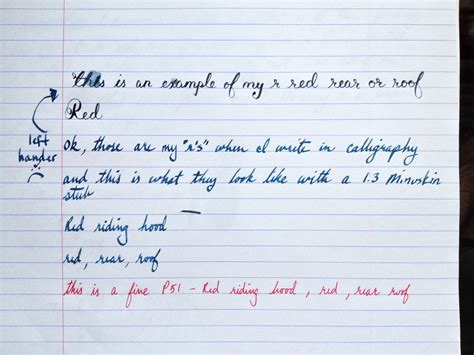 this is an example of my r red rear or roof
Red
left
hander
:(
ok, those are my "r's" when I write in calligraphy
and this is what they look like with a 1.3 Minuskin
stub
Red riding hood
red, rear, roof
this is a fine P51 - Red riding hood, red, rear roof